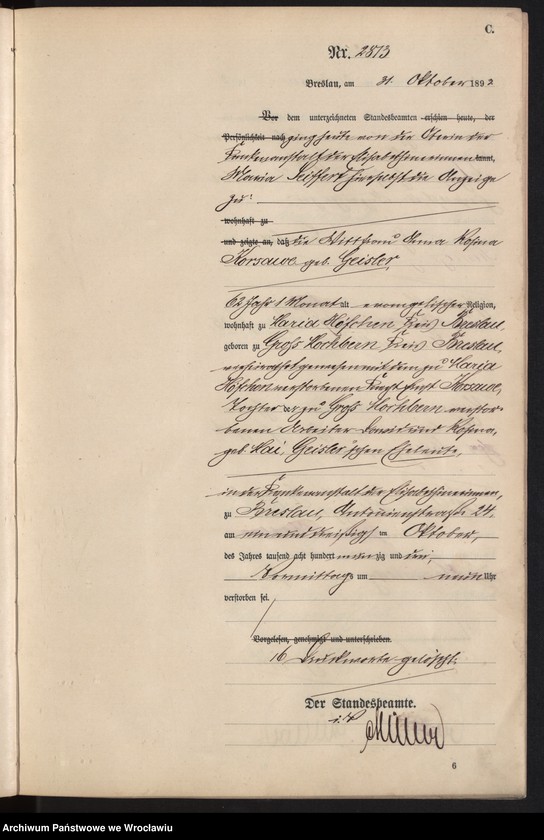 C.
Nr. 2873
Breslau, am 31 Oktober 1892
Vor dem unterzeichneten Standesbeamten erschien heute, der
Persönlichkeit nach ging heute von der Oberin der
Krankenanstalt der Elisabethinerinnen kannt,
Maria Seiffert hierselbst die Anzeige
zu:
wohnhaft zu
und zeigte an, daß die Wittfrau Anna Rosina
Korsawe geb. Geisler,
62 Jahr 1 Monat alt evangelischer Religion,
wohnhaft zu Maria Höfchen Kreis Breslau,
geboren zu Groß Mochbern Kreis Breslau,
verheirathet gewesen mit dem zu Maria
Höfchen verstorbenen Knecht Korsawe,
Tochter der zu Groß Mochbern verstor-
benen Arbeiter David und Rosina,
geb. Mai, Geisler'schen Eheleute,
in der Krankenanstalt der Elisabethinerinnen,
zu Breslau, Antonienstraße 24.
am ein und dreißigsten Oktober,
des Jahres tausend acht hundert neunzig und
Vormittags um neun Uhr
verstorben sei.
Vorgelesen, genehmigt und unterschrieben.
16 Druckworte gelöscht.
Der Standesbeamte.
i. V.
Müller
6
Archiwum Państwowe we Wrocławiu